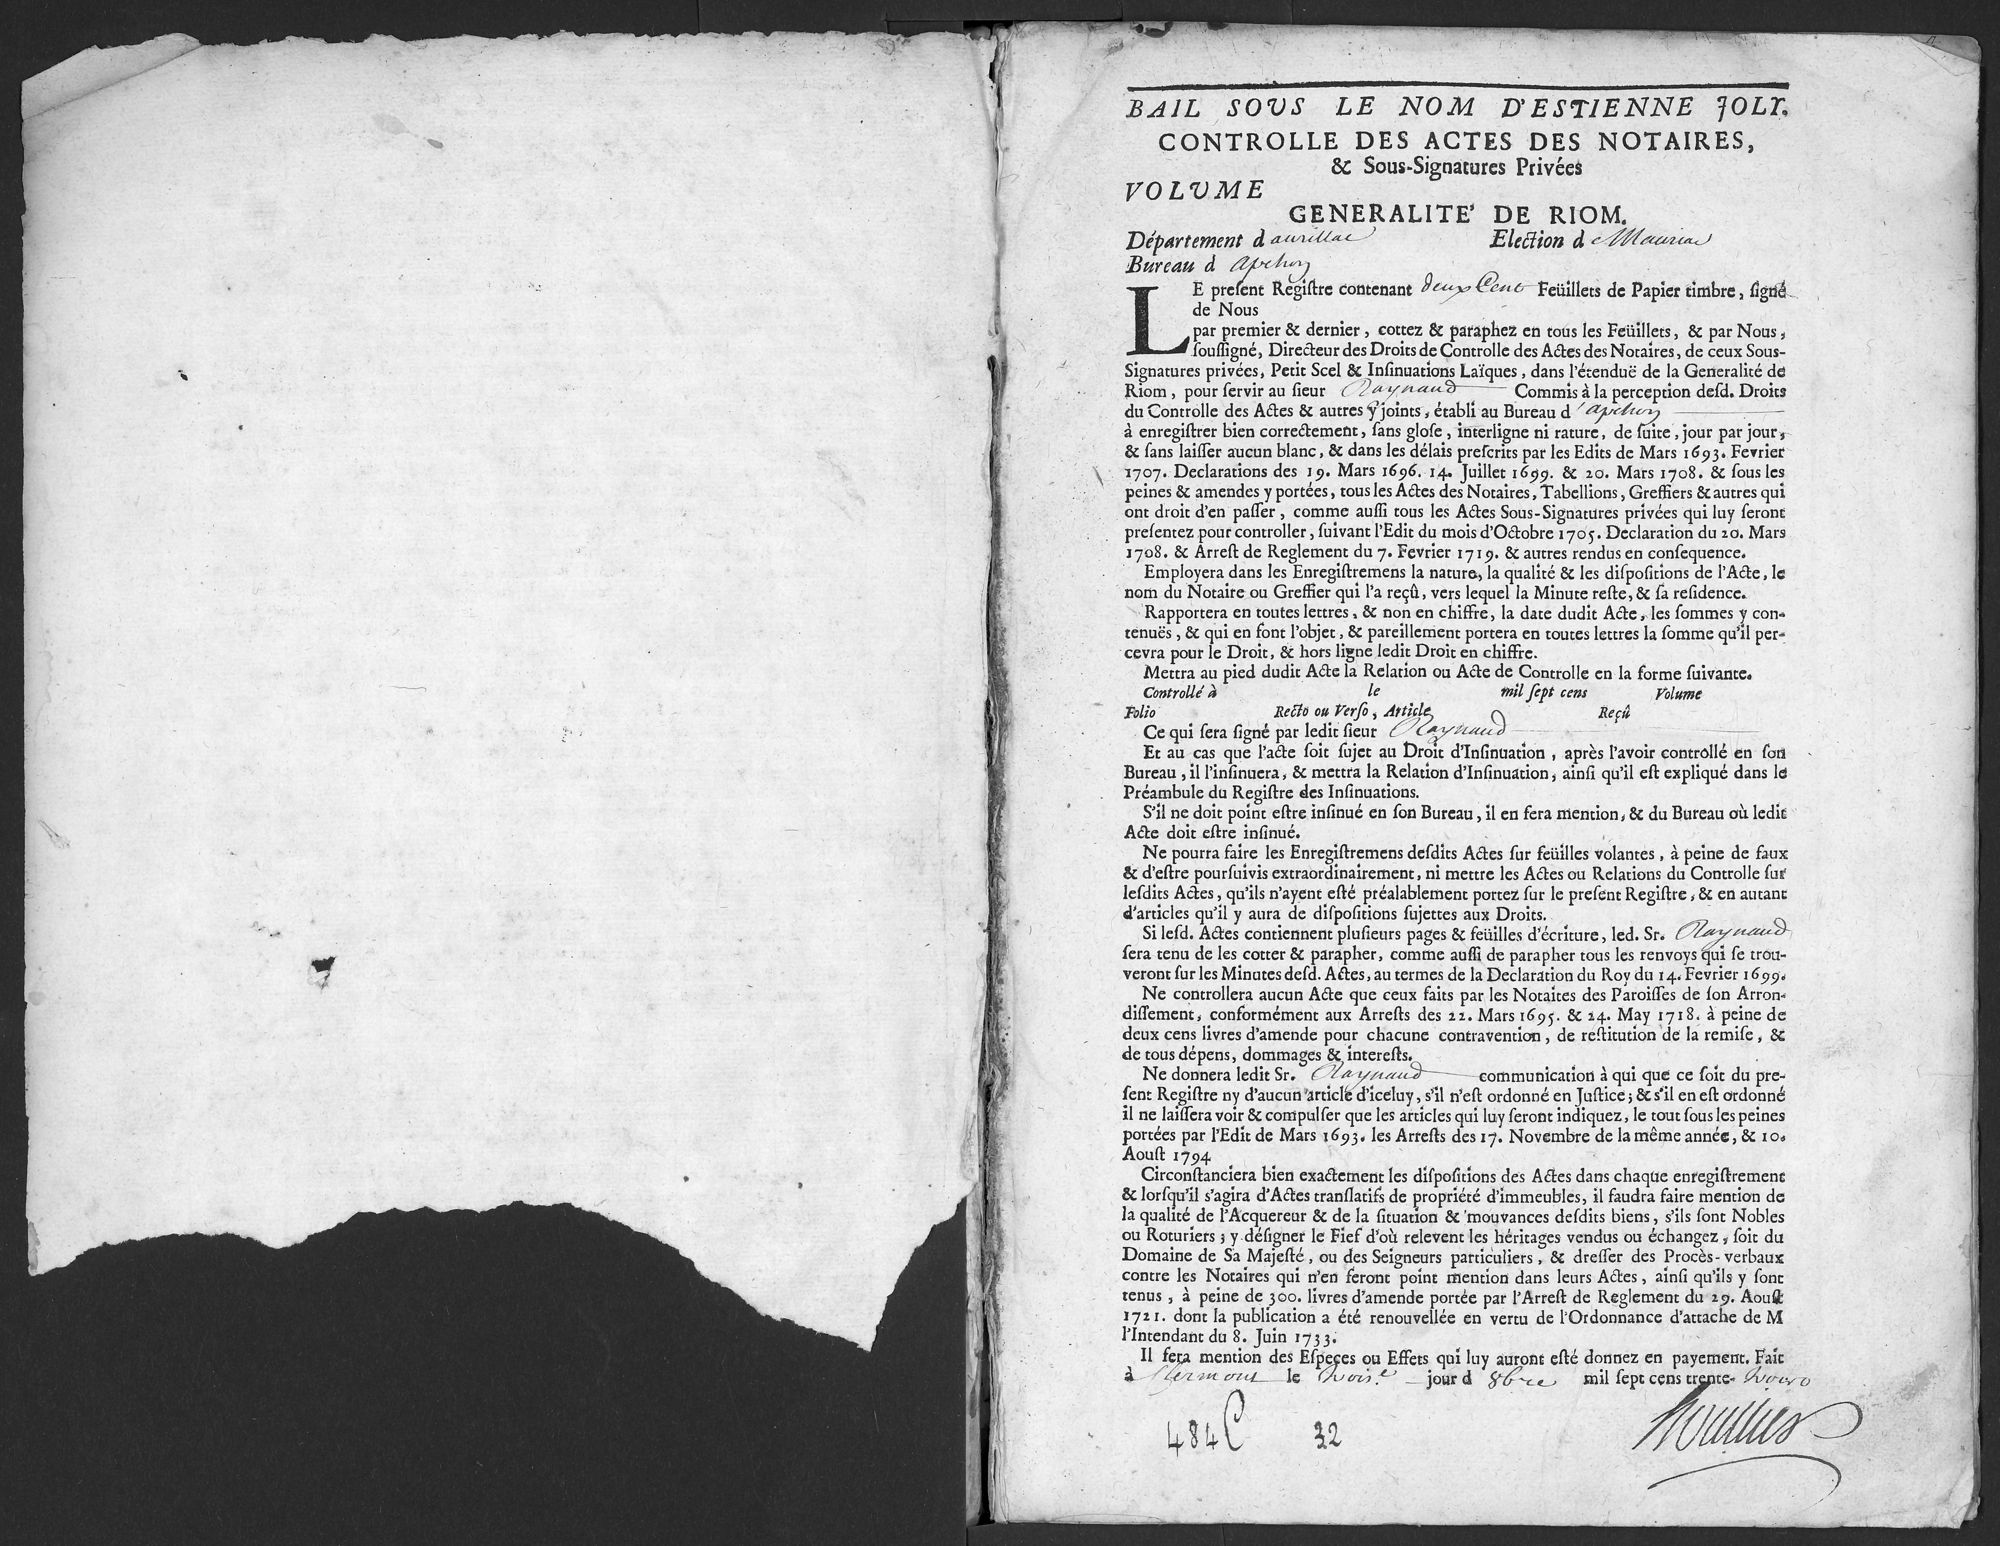 BAIL SOUS LE NOM D'ESTIENNE JOLY.
CONTROLLE DES ACTES DES NOTAIRES,
& Sous-Signatures Privées
VOLUME
GENERALITE' DE RIOM.
Département d aurillac Election d e Mauriac
Bureau d apchon
LE preſent Regiſtre contenant deux Cent Feüillets de Papier timbre, ſigné
de Nous
par premier & dernier, cottez & paraphez en tous les Feüillets, & par Nous,
ſouſſigné, Directeur des Droits de Controlle des Actes des Notaires, de ceux Sous-
Signatures privées, Petit Scel & Inſinuations Laïques, dans l'étenduë de la Generalité de
Riom, pour ſervir au ſieur Raynaud Commis à la perception deſd. Droits
du Controlle des Actes & autres y joints, établi au Bureau d'apchon
à enregiſtrer bien correctement, ſans gloſe, interligne ni rature, de ſuite, jour par jour,
& ſans laiſſer aucun blanc, & dans les délais preſcrits par les Edits de Mars 1693. Fevrier
1707. Declarations des 19. Mars 1696. 14. Juillet 1699. & 20. Mars 1708. & ſous les
peines & amendes y portées, tous les Actes des Notaires, Tabellions, Greffiers & autres qui
ont droit d'en paſſer, comme auſſi tous les Actes Sous-Signatures privées qui luy ſeront
preſentez pour controller, ſuivant l'Edit du mois d'Octobre 1705. Declaration du 20. Mars
1708. & Arreſt de Reglement du 7. Fevrier 1719. & autres rendus en conſequence.
Employera dans les Enregiſtremens la nature, la qualité & les diſpoſitions de l'Acte, le
nom du Notaire ou Greffier qui l'a reçû, vers lequel la Minute reſte, & ſa reſidence.
Rapportera en toutes lettres, & non en chiffre, la date dudit Acte, les ſommes y con-
tenuës, & qui en font l'objet, & pareillement portera en toutes lettres la ſomme qu'il per-
cevra pour le Droit, & hors ligne ledit Droit en chiffre.
Mettra au pied dudit Acte la Relation ou Acte de Controlle en la forme ſuivante.
Controllé à le mil ſept cens Volume
Folio Recto ou Verſo, Article Reçû
Ce qui ſera ſigné par ledit ſieur Raynaud
Et au cas que l'acte ſoit ſujet au Droit d'Inſinuation, après l'avoir controllé en ſon
Bureau, il l'inſinuera, & mettra la Relation d'Inſinuation, ainſi qu'il eſt expliqué dans le
Préambule du Regiſtre des Inſinuations.
S'il ne doit point eſtre inſinué en ſon Bureau, il en fera mention, & du Bureau où ledit
Acte doit eſtre inſinué.
Ne pourra faire les Enregiſtremens deſdits Actes ſur feüilles volantes, à peine de faux
& d'eſtre pourſuivis extraordinairement, ni mettre les Actes ou Relations du Controlle ſur
leſdits Actes, qu'ils n'ayent eſté préalablement portez ſur le preſent Regiſtre, & en autant
d'articles qu'il y aura de diſpoſitions ſujettes aux Droits.
Si leſd. Actes contiennent pluſieurs pages & feüilles d'écriture, led. Sr. Raynaud
ſera tenu de les cotter & parapher, comme auſſi de parapher tous les renvoys qui ſe trou-
veront ſur les Minutes deſd. Actes, au termes de la Declaration du Roy du 14. Fevrier 1699.
Ne controllera aucun Acte que ceux faits par les Notaires des Paroiſſes de ſon Arron-
diſſement, conformément aux Arreſts des 22. Mars 1695. & 24. May 1718. à peine de
deux cens livres d'amende pour chacune contravention, de reſtitution de la remiſe, &
de tous dépens, dommages & intereſts.
Ne donnera ledit Sr. Raynaud communication à qui que ce ſoit du pre-
ſent Regiſtre ny d'aucun article d'iceluy, s'il n'eſt ordonné en Juſtice; & s'il en eſt ordonné
il ne laiſſera voir & compulſer que les articles qui luy ſeront indiquez, le tout ſous les peines
portées par l'Edit de Mars 1693. les Arreſts des 17. Novembre de la même année, & 10.
Aouſt 1794
Circonſtanciera bien exactement les diſpoſitions des Actes dans chaque enregiſtrement
& lorſqu'il s'agira d'Actes tranſlatifs de propriété d'immeubles, il faudra faire mention de
la qualité de l'Acquereur & de la ſituation & mouvances deſdits biens, s'ils ſont Nobles
ou Roturiers; y déſigner le Fief d'où relevent les héritages vendus ou échangez, ſoit du
Domaine de Sa Majeſté, ou des Seigneurs particuliers, & dreſſer des Procès-verbaux
contre les Notaires qui n'en feront point mention dans leurs Actes, ainſi qu'ils y ſont
tenus, à peine de 300. livres d'amende portée par l'Arreſt de Reglement du 29. Aouſt
1721. dont la publication a été renouvellée en vertu de l'Ordonnance d'attache de M
l'Intendant du 8. Juin 1733.
Il fera mention des Eſpeces ou Effets qui luy auront eſté donnez en payement. Fait
à Clermont le trois.e jour d 8bre mil ſept cens trente-
484 C 32